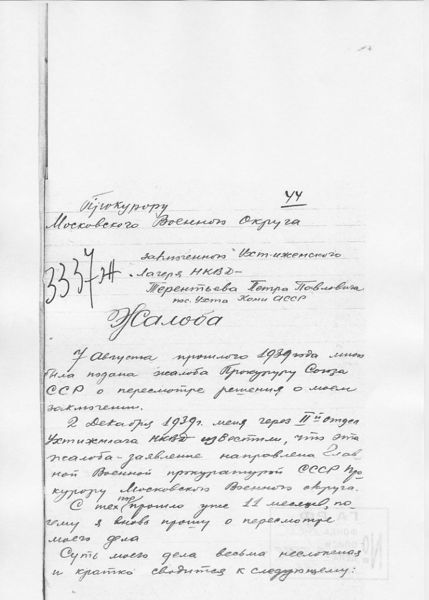 44
Прокурору
Московского Военного Округа
заключенного Ухт-ижемского
Лагеря НКВД-
3337Ж
Терентьева Петра Павловича
пос. Ухта Коми АССР
Жалоба
7 Августа прошлого 1939 года мною
была подана жалоба Прокурору Союза
ССР о пересмотре решения о моем
заключении.
2 Декабря 1939г. меня через II й отдел
Ухтижмлага НКВД известили, что эта
жалоба-заявление направлена Глав-
ной Военной прокуратурой СССР Про-
курору Московского Военного округа.
С тех пор прошло уже 11 месяцев, по-
чему я вновь прошу о пересмотре
моего дела
Суть моего дела весьма несложная
и кратко сводится к следующему: